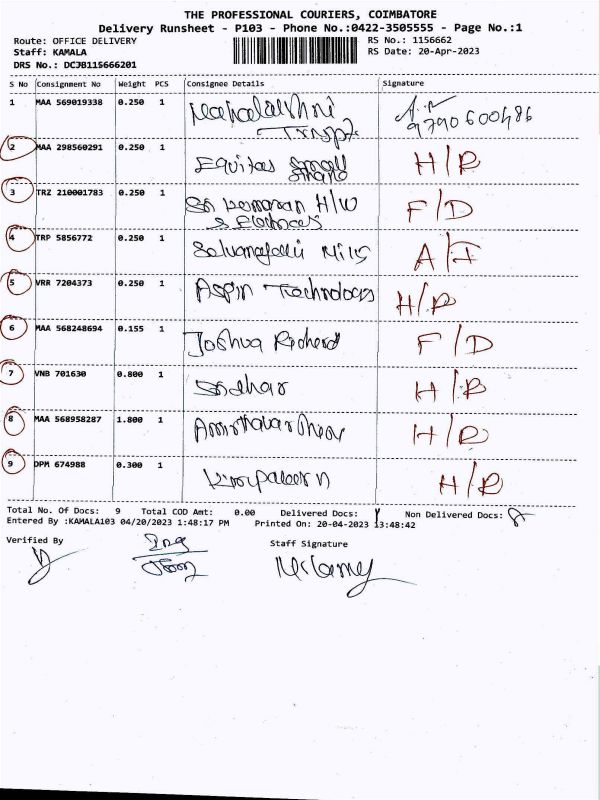 THE PROFESSIONAL COURIERS, COIMBATORE
Delivery Runsheet - P103 - Phone No.:0422-3505555 - Page No.:1
Route: OFFICE DELIVERY RS No.: 1156662
Staff: KAMALA RS Date: 20-Apr-2023
DRS No.: DCJB115666201
S No Consignment No Weight PCS Consignee Details Signature
1 MAA 569019338 0.250 1 Mahalakshmi
9790600486
2 MAA 298560291 0.250 1 Equitas Small H/R
3 TRZ 210001783 0.250 1 H/W F/D
4 TRP 5856772 0.250 1 Mills A/I
5 VRR 7204373 0.250 1 Aspin Technology H/R
6 MAA 568248694 0.155 1 Joshua Richard F/D
7 VNB 701630 0.800 1 Sridhar H/R
8 MAA 568958287 1.800 1 H/R
9 DPM 674988 0.300 1 H/R
Total No. Of Docs: 9 Total COD Amt: 0.00 Delivered Docs: 1 Non Delivered Docs: 8
Entered By :KAMALA103 04/20/2023 1:48:17 PM Printed On: 20-04-2023 13:48:42
Verified By Staff Signature